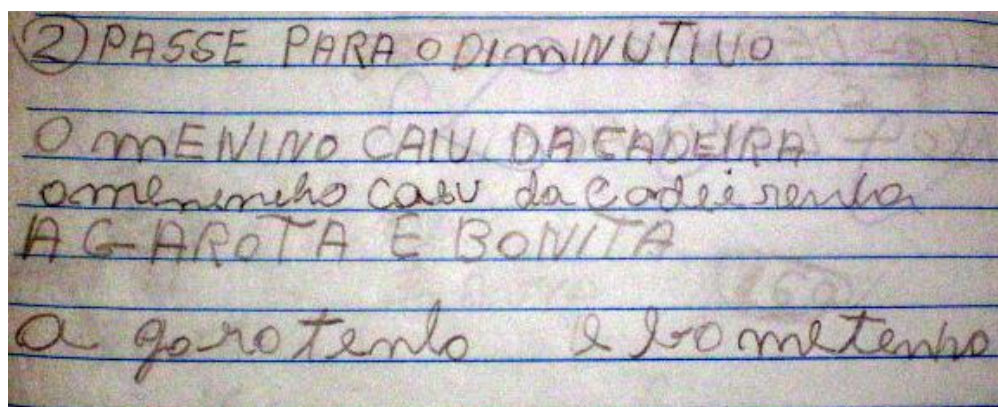 2) PASSE PARA O DIMINUTIVO
O MENINO CAIU DA CADEIRA
o menencho caiu da cadeirenha
A GAROTA E BONITA
a garotenha e bometenha